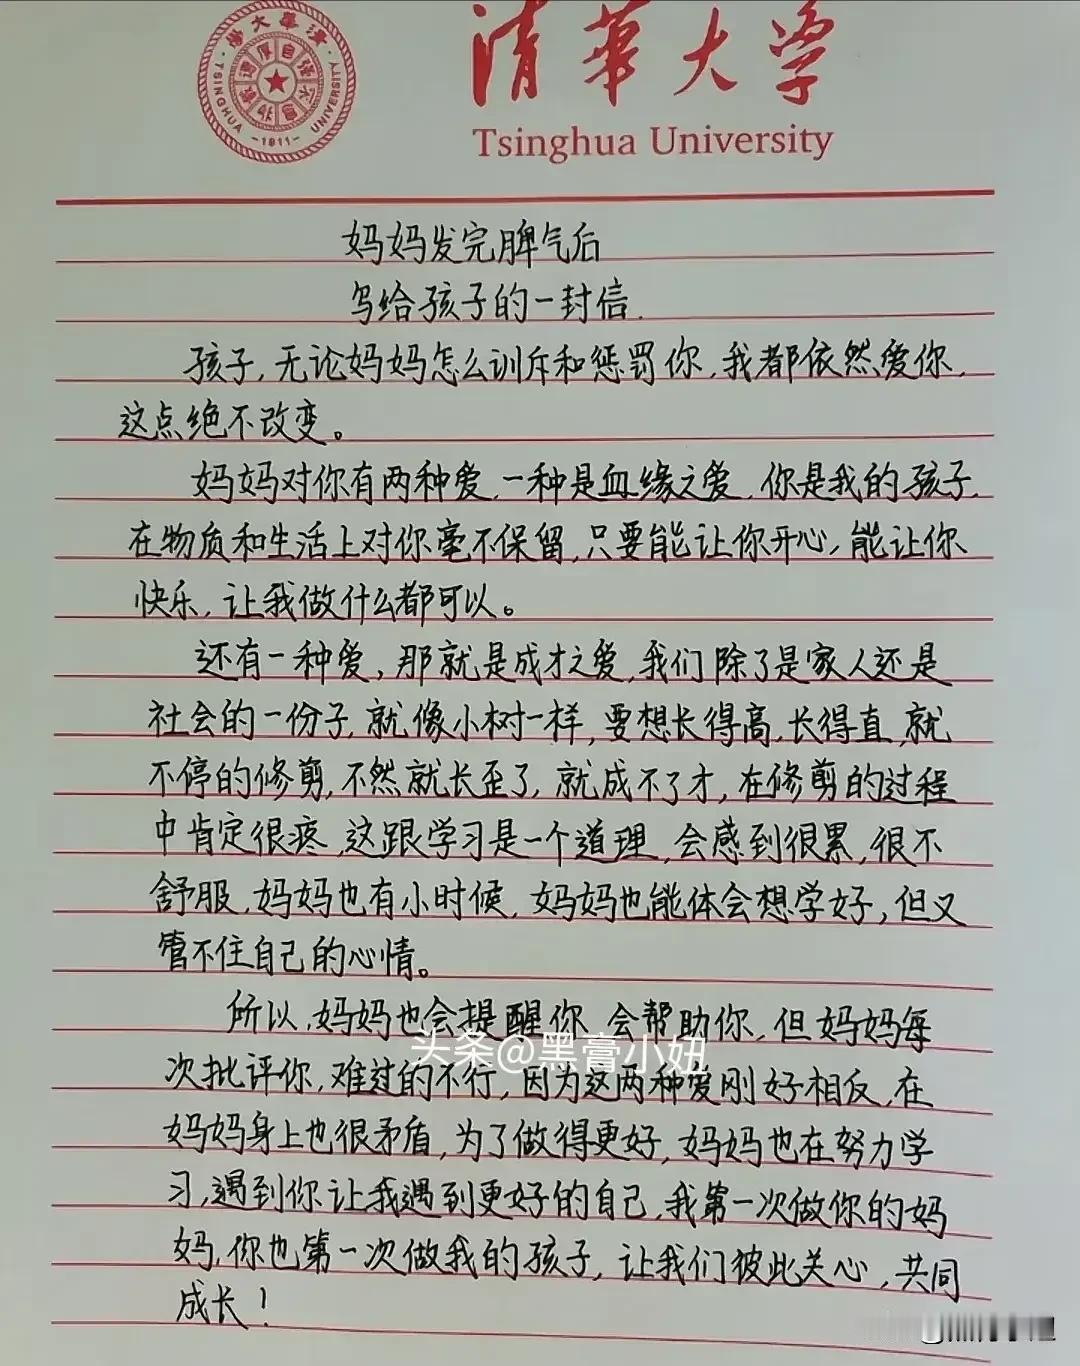 清華大学
Tsinghua University
清華大學
自强不息
厚德載物
TSINGHUA UNIVERSITY
-1911-
妈妈发完脾气后
写给孩子的一封信.
孩子,无论妈妈怎么训斥和惩罚你,我都依然爱你,
这点绝不改变。
妈妈对你有两种爱,一种是血缘之爱,你是我的孩子,
在物质和生活上对你毫不保留,只要能让你开心,能让你
快乐,让我做什么都可以。
还有一种爱,那就是成才之爱,我们除了是家人还是
社会的一份子,就像小树一样,要想长得高,长得直,就
不停的修剪,不然就长歪了,就成不了才,在修剪的过程
中肯定很疼,这跟学习是一个道理,会感到很累,很不
舒服,妈妈也有小时候,妈妈也能体会想学好,但又
管不住自己的心情。
所以,妈妈也会提醒你,会帮助你,但妈妈每
头条@黑膏小妞
次批评你,难过的不行,因为这两种爱刚好相反,在
妈妈身上也很矛盾,为了做得更好,妈妈也在努力学
习,遇到你让我遇到更好的自己,我第一次做你的妈
妈,你也第一次做我的孩子,让我们彼此关心,共同
成长!